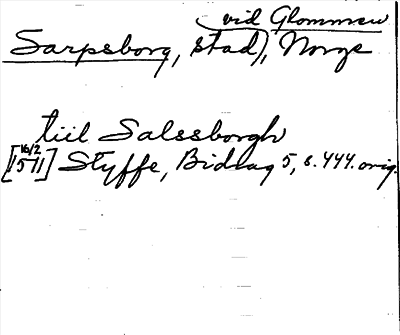 vid Glommen
Sarpsborg, stad), Norge
tiil Salssborgh
[16/2 1511] Styffe, Bidrag 5, s. 444. orig.